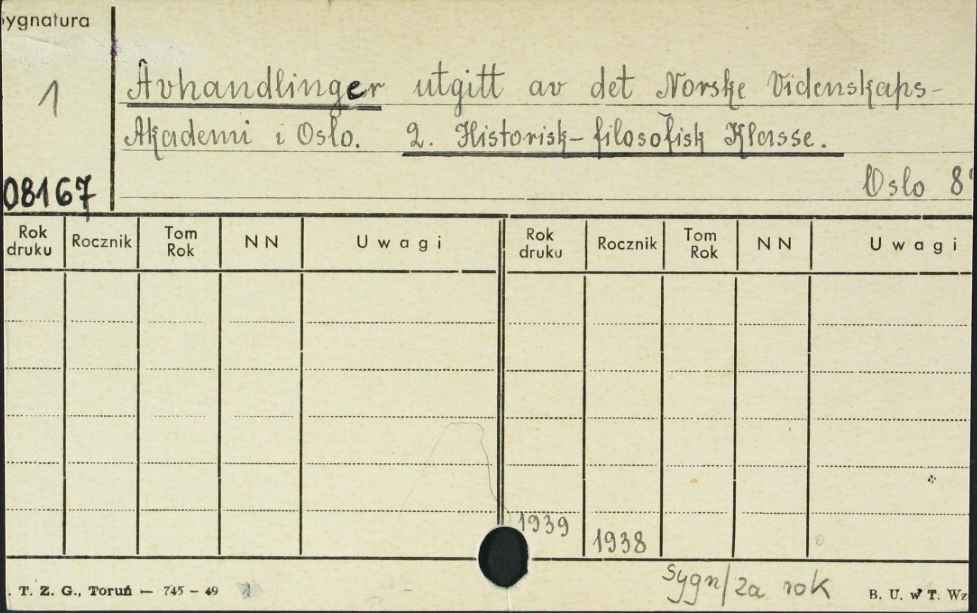 Sygnatura
1
Avhandlinger utgitt av det Norske Videnskaps-
Akademi i Oslo. 2. Historisk-filosofisk Klasse.
08167
Oslo 8°
Rok druku Rocznik Tom Rok NN Uwagi Rok druku Rocznik Tom Rok NN Uwagi
1939
1938
sygn/za rok
. T. Z. G., Toruń — 745 – 49
B. U. w T. Wz